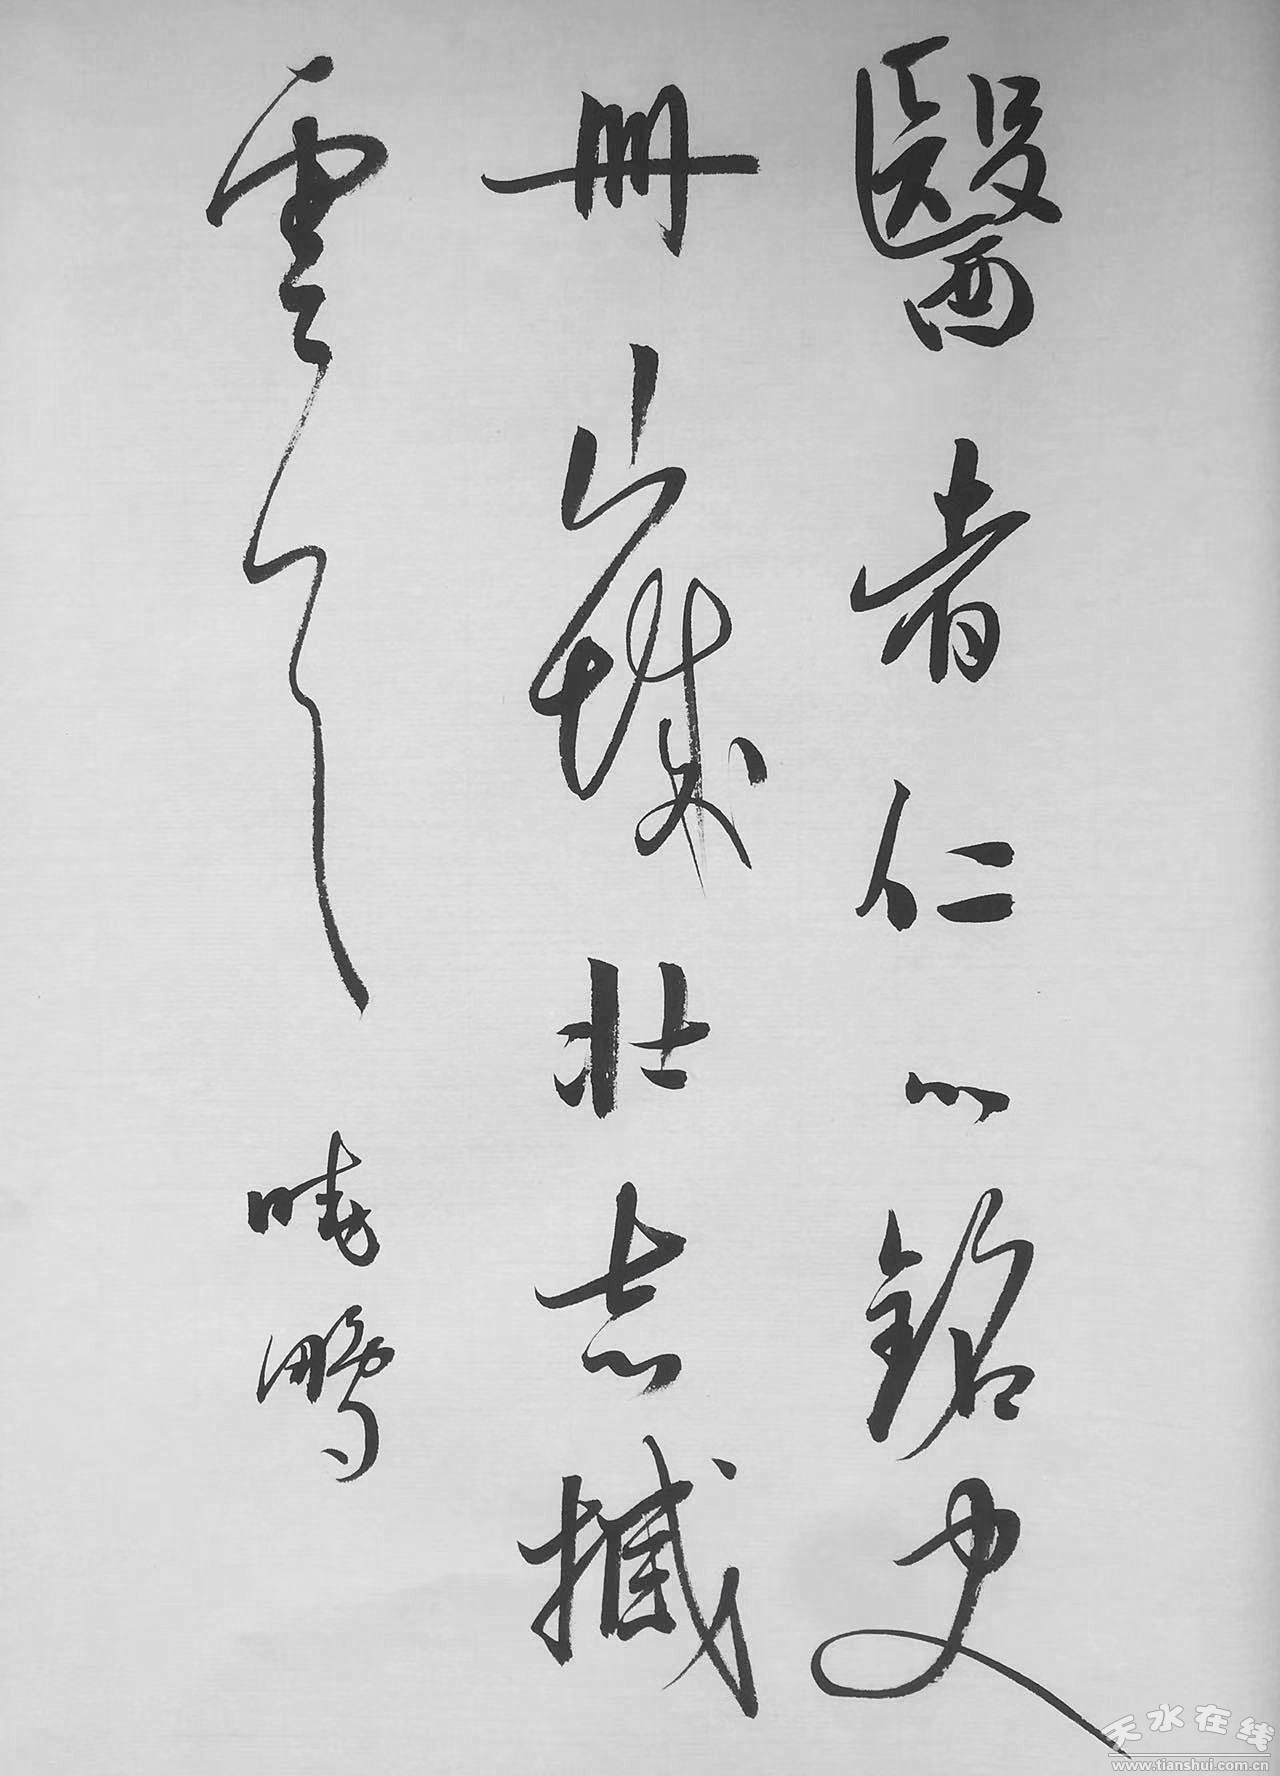 醫者仁心銘史
冊山城壯志撼
雲天 曉鵬
天水在线
www.tianshui.com.cn